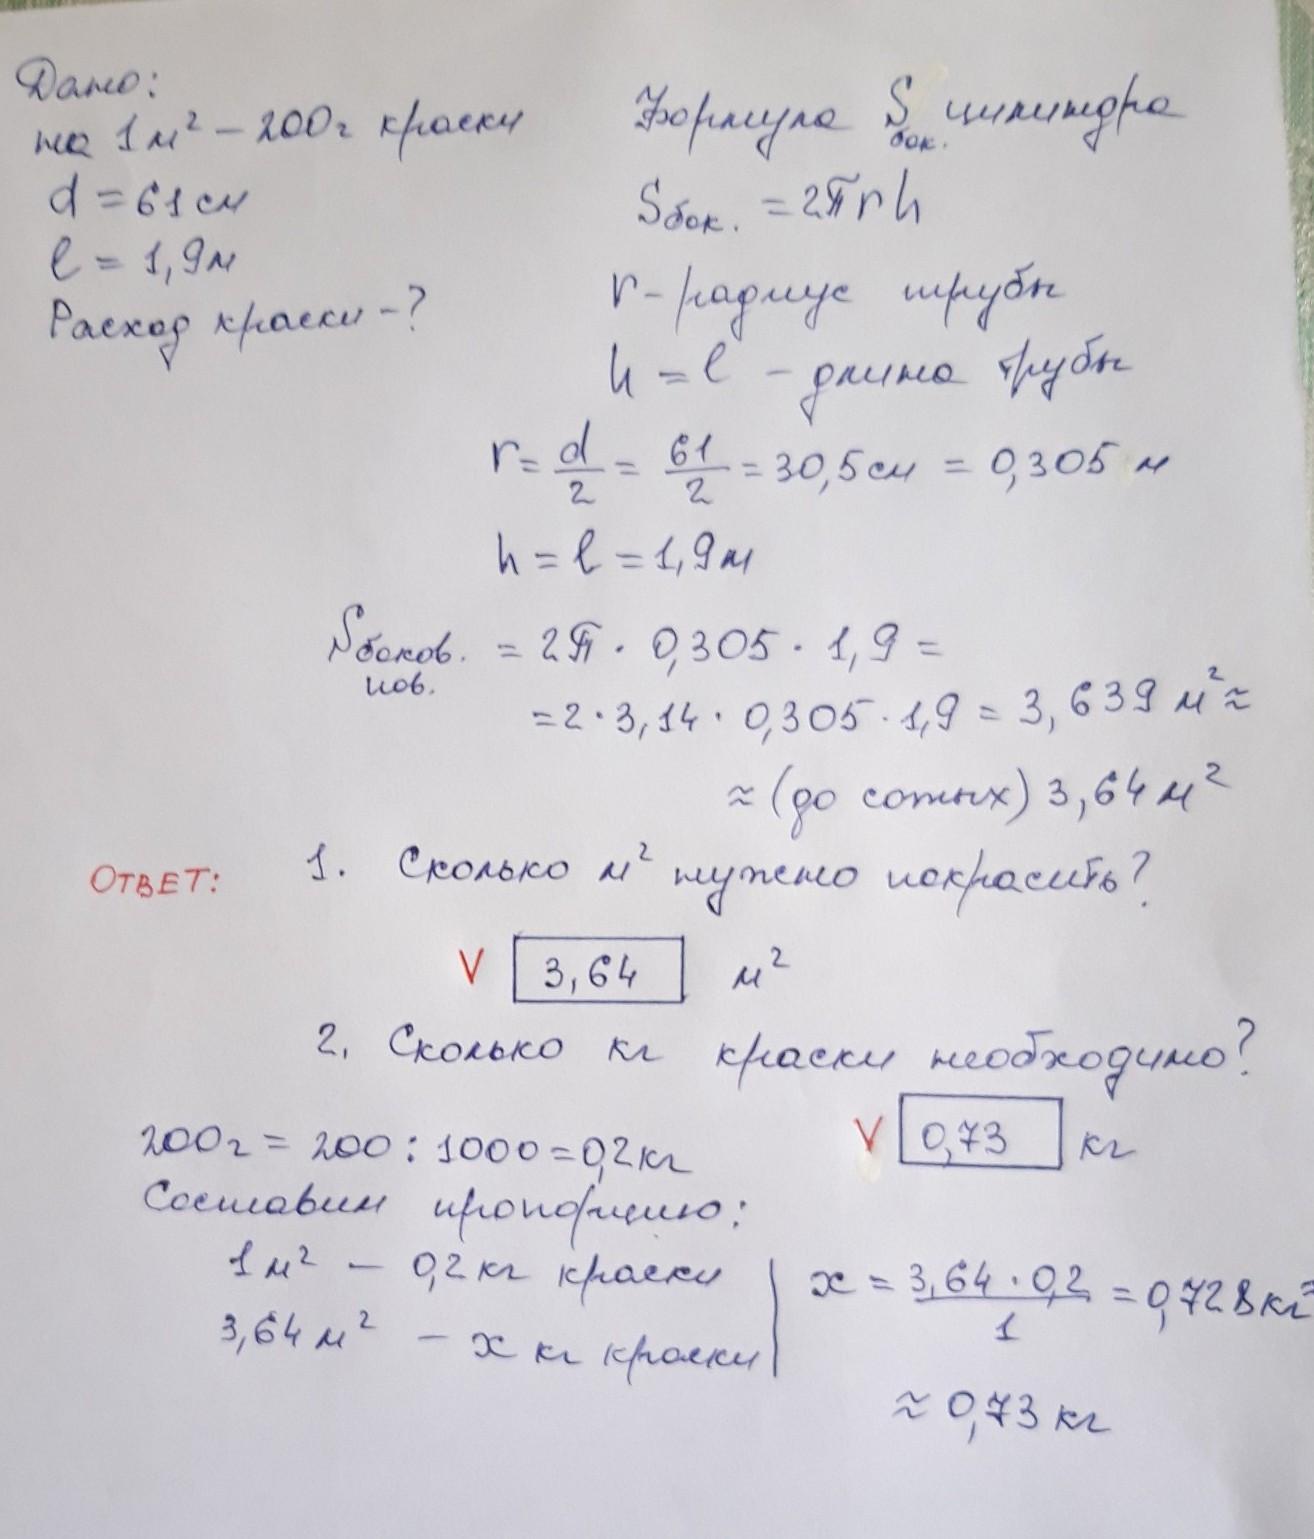 Дано:
на 1м² – 200г краски
d = 61см
l = 1,9м
Расход краски -?
Формула S бок. цилиндра
Sбок. = 2πrh
r - радиус трубы
h = l - длина трубы
r = d/2 = 61/2 = 30,5см = 0,305 м
h = l = 1,9м
Sбоков. пов. = 2π · 0,305 · 1,9 =
= 2 · 3,14 · 0,305 · 1,9 = 3,639 м² ≈
≈ (до сотых) 3,64 м²
ОТВЕТ: 1. Сколько м² нужно покрасить?
V 3,64 м²
2. Сколько кг краски необходимо?
V 0,73 кг
200г = 200 : 1000 = 0,2кг
Составим пропорцию:
1м² – 0,2кг краски
3,64м² – x кг краски
x = 3,64 · 0,2 / 1 = 0,728кг ≈
≈ 0,73 кг